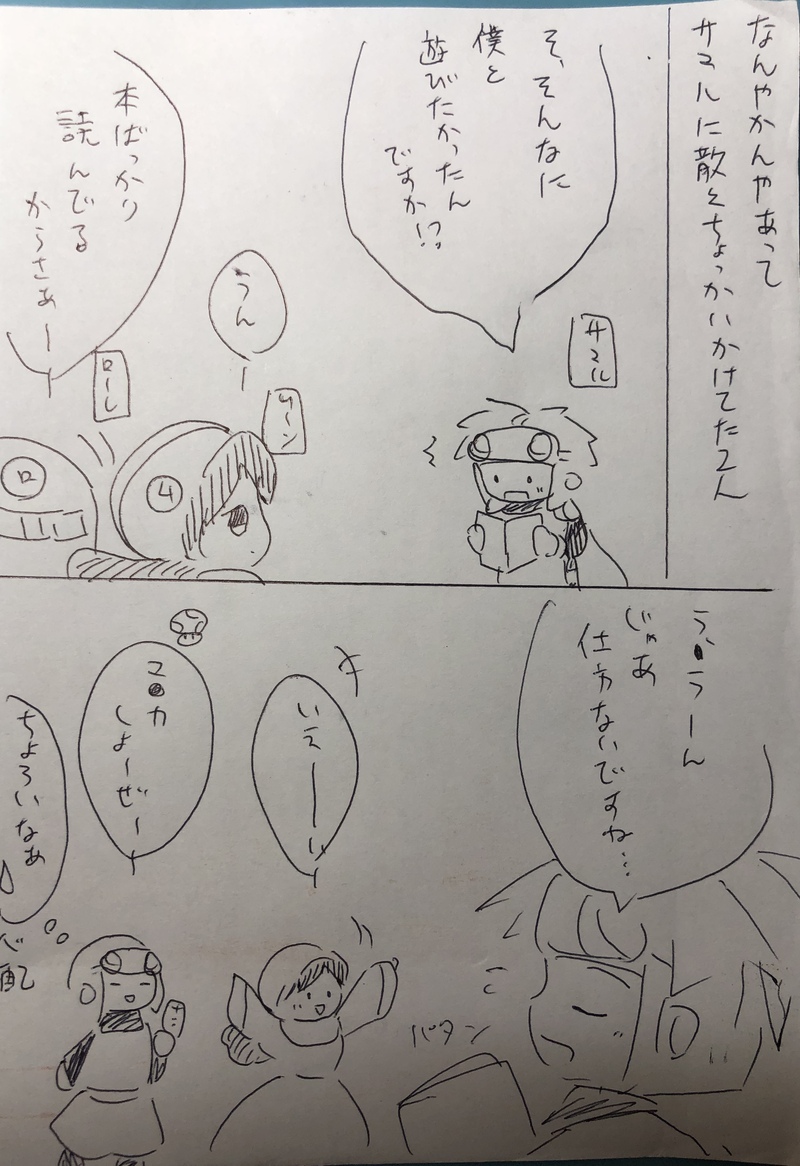 なんやかんやあって
サマルに散々ちょっかいかけてた2人
そ、そんなに
僕と
遊びたかったん
ですか!?
サマル
うん
ムーン
4
本ばっかり
読んでる
からさぁー
ローレ
ロ
う、うーん
じゃあ
仕方ないですね…
パタン
いえーい
マ●カ
しよーぜー
ちょろいなあ
心配